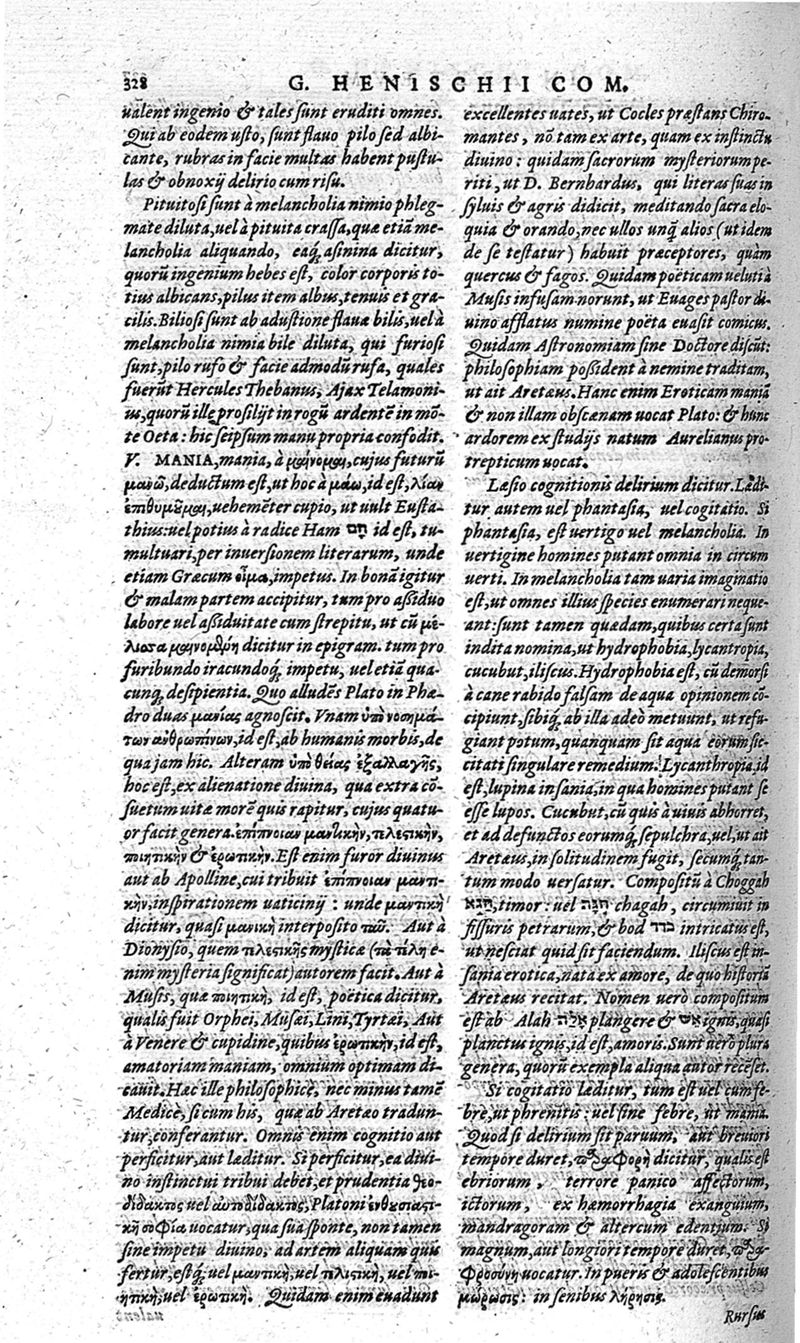 328
G. HENISCHII COM.
ualent ingenio & tales sunt eruditi omnes.
Qui ab eodem usto, sunt flauo pilo sed albi-
cante, rubras in facie multas habent pustu-
las & obnoxij delirio cum risu.
Pituitosi sunt à melancholia nimio phleg-
mate diluta, uel à pituita crassa, quæ etiã me-
lancholia aliquando, eaq́; asinina dicitur,
quorũ ingenium hebes est, color corporis to-
tius albicans, pilus item albus, tenuis et gra-
cilis. Biliosi sunt ab adustione flauæ bilis, uel à
melancholia nimia bile diluta, qui furiosi
sunt, pilo rufo & facie admodũ rufa, quales
fuerũt Hercules Thebanus, Ajax Telamoni-
us, quorũ ille prosilijt in rogũ ardentẽ in mõ-
te Oeta: hic seipsum manu propria confodit.
V. MANIA, mania, à μαίνομαι, cujus futurũ
μανῶ, deductum est, ut hoc à μάω, id est, λίαν
ἐπιθυμοῦμαι, uehemẽter cupio, ut uult Eusta-
thius: uel potius à radice Ham חָם id est, tu-
multuari, per inuersionem literarum, unde
etiam Græcum οἶμα, impetus. In bonã igitur
& malam partem accipitur, tum pro aßiduo
labore uel aßiduitate cum strepitu, ut cũ μέ-
λισσα μαινομένη dicitur in epigram. tum pro
furibundo iracundoq́; impetu, uel etiã qua-
cunq́; desipientia. Quo alludẽs Plato in Phæ-
dro duas μανίας agnoscit. Vnam ὑπὸ νοσημά-
των ἀνθρωπίνων, id est, ab humanis morbis, de
qua jam hic. Alteram ὑπὸ θείας ἐξαλλαγῆς,
hoc est, ex alienatione diuina, qua extra cõ-
suetum uitæ morẽ quis rapitur, cujus quatu-
or facit genera. ἐπίπνοιαν μαντικὴν, τελεστικὴν,
ποιητικὴν & ἐρωτικὴν. Est enim furor diuinus
aut ab Apolline, cui tribuit ἐπίπνοιαν μαντι-
κὴν, inspirationem uaticinij: unde μαντικὴ
dicitur, quasi μανικὴ interposito ταῦ. Aut à
Dionysio, quem τελεστικῆς mysticæ (τὰ τέλη e-
nim mysteria significat) autorem facit. Aut à
Musis, quæ ποιητικὴ, id est, poëtica dicitur,
qualis fuit Orphei, Musæi, Lini, Tyrtæi, Aut
à Venere & cupidine, quibus ἐρωτικὴν, id est,
amatoriam maniam, omnium optimam di-
cauit. Hæc ille philosophicè, nec minus tamẽ
Medicè, si cum his, quæ ab Aretæo tradun-
tur, conferantur. Omnis enim cognitio aut
perficitur, aut læditur. Si perficitur, ea diui-
no instinctui tribui debet, et prudentia θεο-
δίδακτος uel αὐτοδίδακτος, Platoni ἐνθεαστι-
κὴ σοφία uocatur, qua sua sponte, non tamen
sine impetu diuino, ad artem aliquam quis
fertur, estq́; uel μαντικὴ, uel τελεστικὴ, uel ποι-
ητικὴ, uel ἐρωτικὴ. Quidam enim euadunt
excellentes uates, ut Cocles præstans Chiro-
mantes, nõ tam ex arte, quam ex instinctu
diuino: quidam sacrorum mysteriorum pe-
riti, ut D. Bernhardus, qui literas suas in
syluis & agris didicit, meditando sacra elo-
quia & orando, nec ullos unq̃ alios (ut idem
de se testatur) habuit præceptores, quàm
quercus & fagos. Quidam poëticam ueluti à
Musis infusam norunt, ut Euages pastor di-
uino afflatus numine poëta euasit comicus.
Quidam Astronomiam sine Doctore discũt:
philosophiam possident à nemine traditam,
ut ait Aretæus. Hanc enim Eroticam maniã
& non illam obscænam uocat Plato: & hunc
ardorem ex studijs natum Aurelianus pro-
trepticum uocat.
Læsio cognitionis delirium dicitur. Lædi-
tur autem uel phantasia, uel cogitatio. Si
phantasia, est uertigo uel melancholia. In
uertigine homines putant omnia in circum
uerti. In melancholia tam uaria imaginatio
est, ut omnes illius species enumerari neque-
ant: sunt tamen quædam, quibus certa sunt
indita nomina, ut hydrophobia, lycantropia,
cucubut, iliscus. Hydrophobia est, cũ demorsi
à cane rabido falsam de aqua opinionem cõ-
cipiunt, sibiq́; ab illa adeò metuunt, ut refu-
giant potum, quanquam sit aqua eorum sic-
citati singulare remedium. Lycanthropia, id
est, lupina insania, in qua homines putant se
esse lupos. Cucubut, cũ quis à uiuis abhorret,
et ad defunctos eorumq́; sepulchra, uel, ut ait
Aretæus, in solitudinem fugit, secumq́; tan-
tum modo uersatur. Compositũ à Choggah
חגא, timor: uel חגה chagah, circumiuit in
fissuris petrarum, & bod בדד intricatus est,
ut nesciat quid sit faciendum. Iliscus est in-
sania erotica, nata ex amore, de quo historiã
Aretæus recitat. Nomen uerò compositum
est ab Alah אלה plangere & אש ignis, quasi
planctus ignis, id est, amoris. Sunt uerò plura
genera, quorũ exempla aliqua autor recẽset.
Si cogitatio læditur, tum est uel cum fe-
bre, ut phrenitis: uel sine febre, ut mania.
Quod si delirium sit paruum, aut breuiori
tempore duret, παραφορὴ dicitur, qualis est
ebriorum, terrore panico affectorum,
ictorum, ex hæmorrhagia exanguium,
mandragoram & altercum edentium. Si
magnum, aut longiori tempore duret, παρα-
φροσύνη uocatur. In pueris & adolescentibus
μώρωσις: in senibus λήρησις.
Rursus